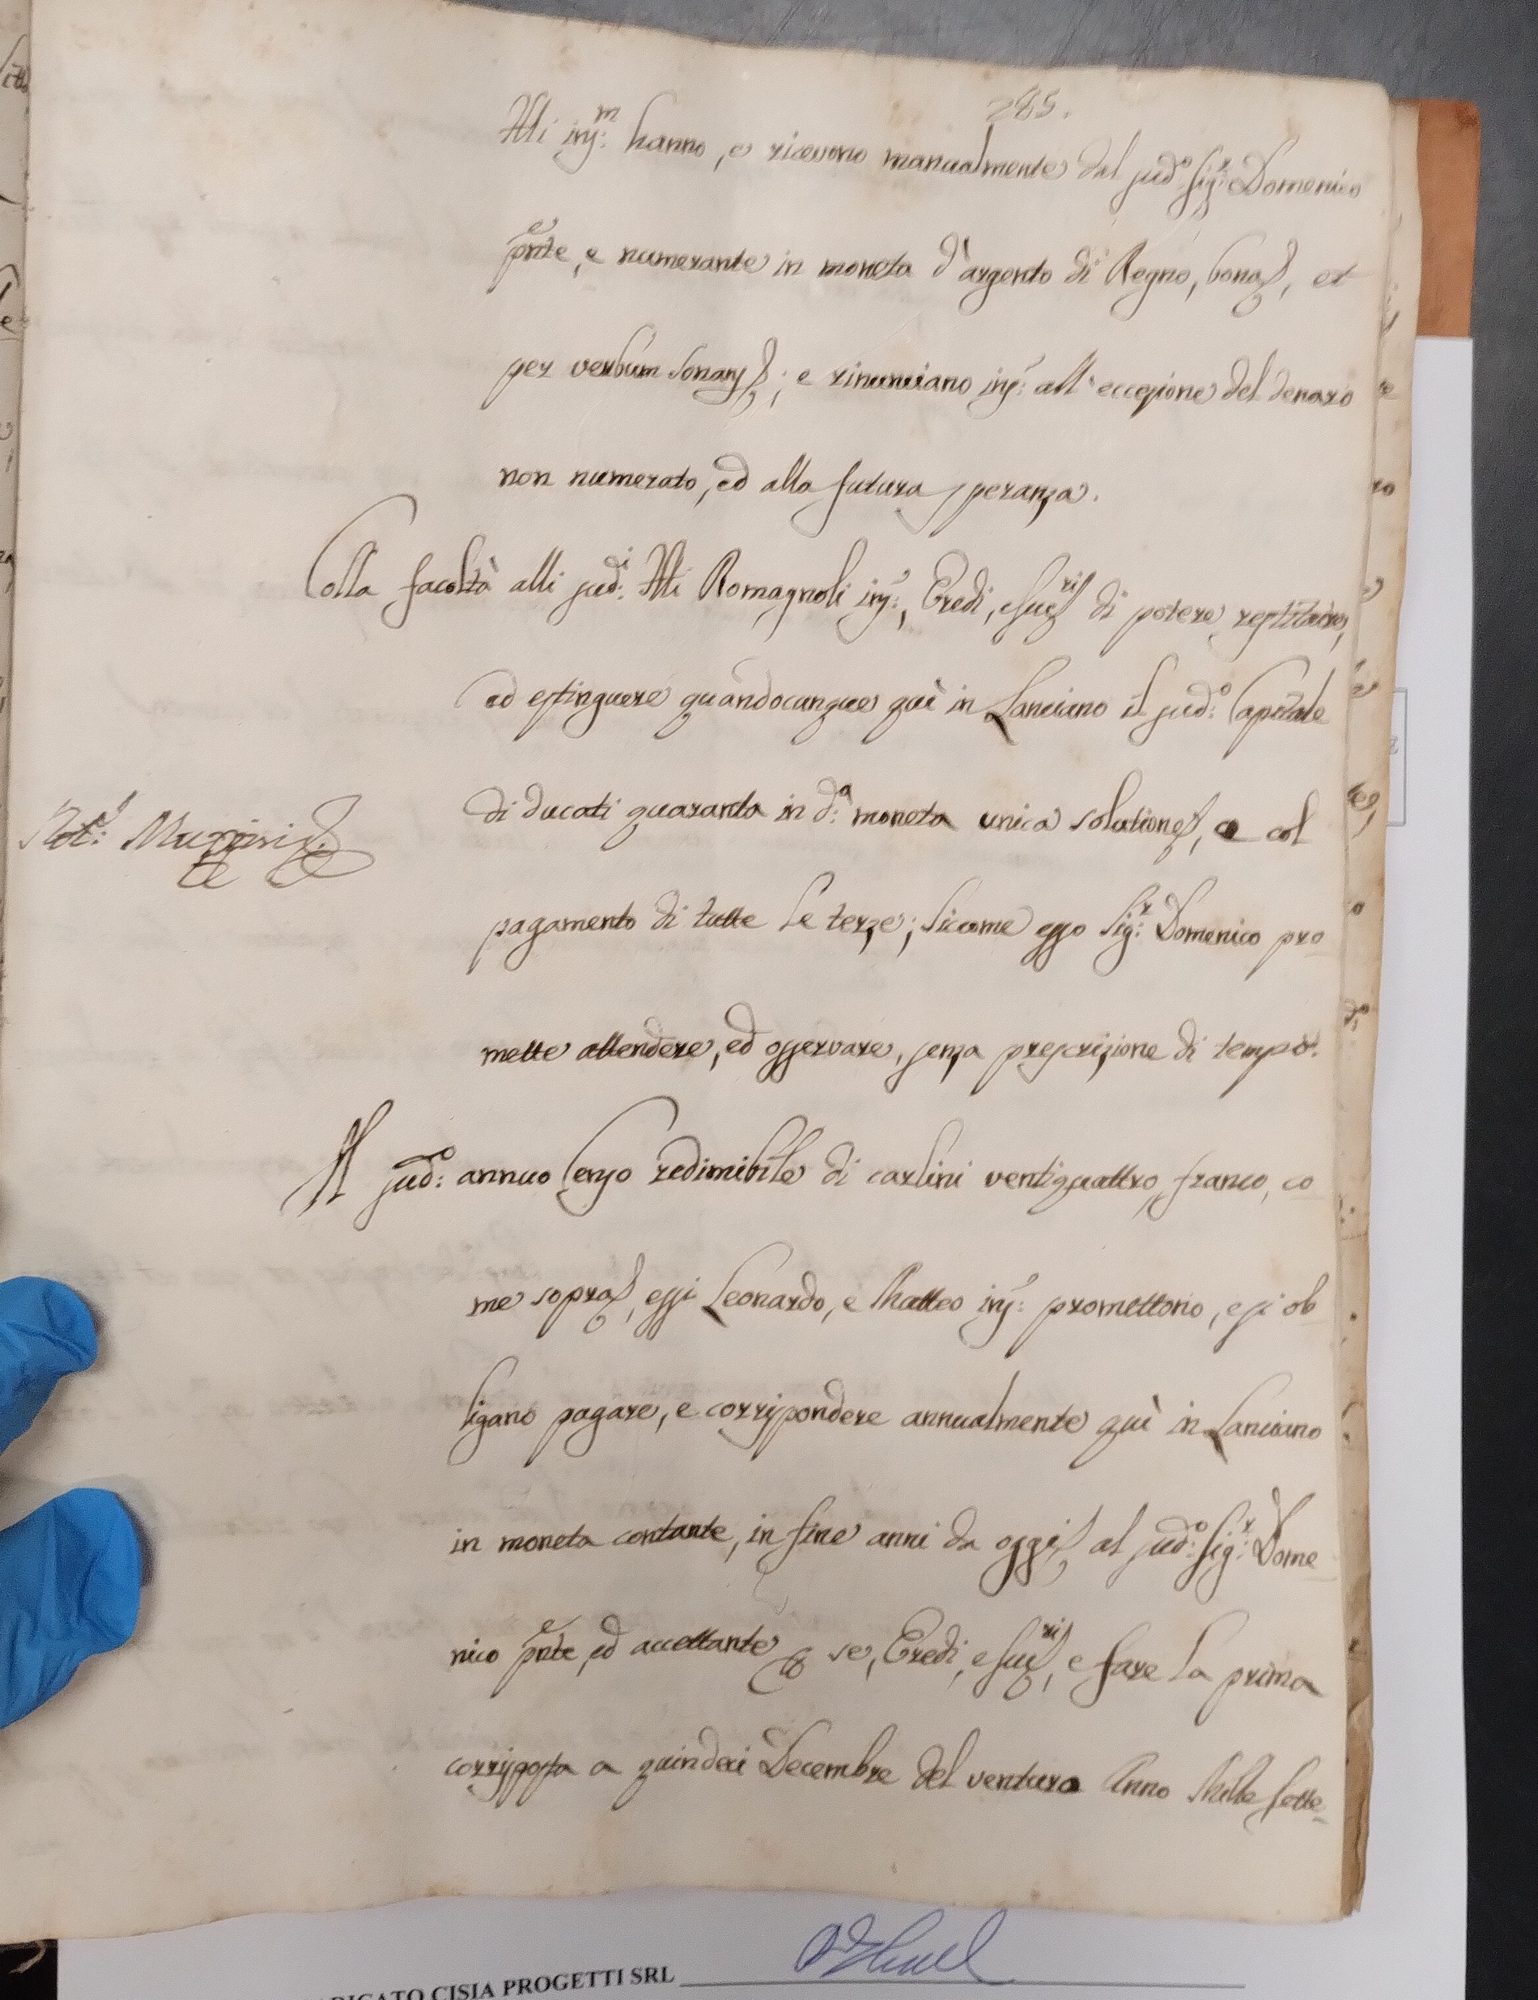 285.
Atti ins:m hanno, e ricevono manualmente dal sud:o Sig:r Domenico
pnte, e numerante in moneta d'argento di Regno, bona, et
per verbum sonans; e rinunciano ins: all'eccezione del denaro
non numerato, ed alla futura speranza.
Colla facoltà alli sud:i Atti Romagnoli ins:, Eredi, e Succ:ri di potere restituire,
ed estinguere quandocunque quì in Lanciano il sud:o Capitale
di ducati quaranta in d:a moneta unica solutione, e col
Not:r
pagamento di tutte le terze; siccome esso Sig:r Domenico pro
mette attendere, ed osservare, senza prescrizione di tempo.
Il sud:o annuo Censo redimibile di carlini ventiquattro, franco, co
me sopra, essi Leonardo, e Matteo ins: promettono, e si ob
ligano pagare, e corrispondere annualmente quì in Lanciano
in moneta contante, in fine anni da oggi, al sud:o Sig:r Dome
nico pnte, ed accettante per se, Eredi, e Succ:ri, e fare la prima
corrisposta a quindeci Decembre del venturo Anno Mille sette
CISIA PROGETTI SRL